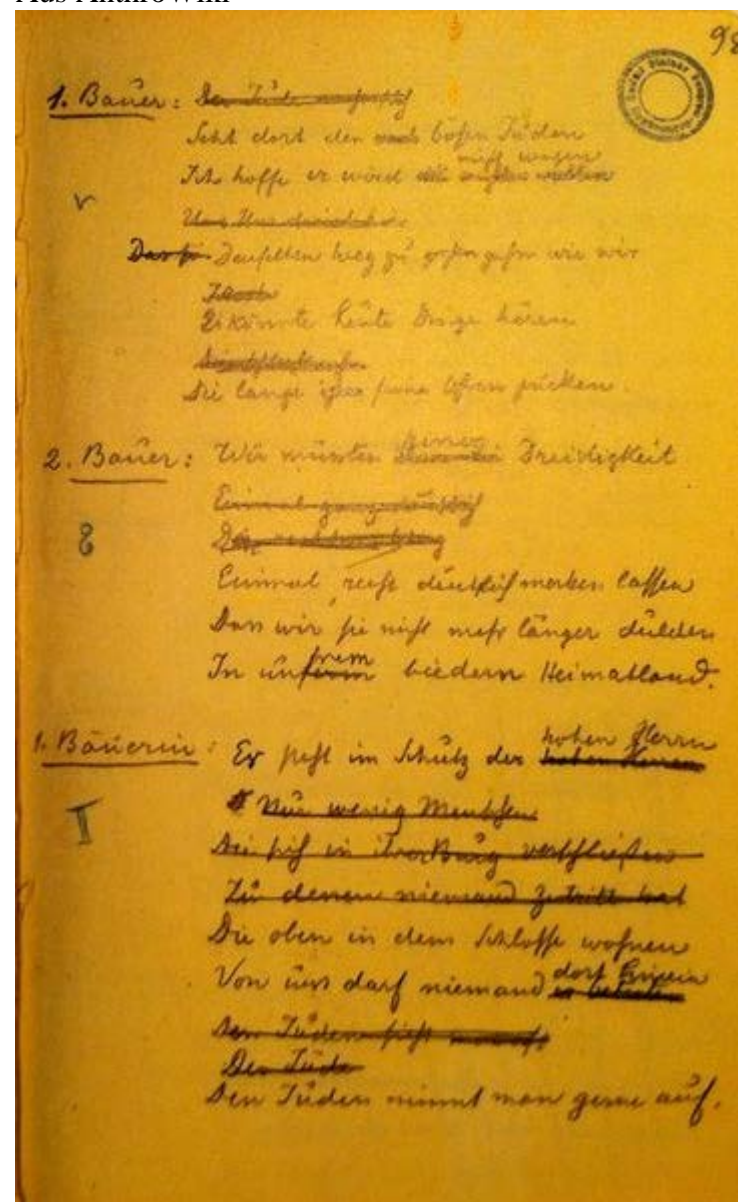 Aus AnthroWiki
98
1. Bauer: Der Jude
Seht dort den bösen Juden
Ich hoffe er wird nicht wagen
Denselben Weg zu gehen wie wir
Er könnte heute Dinge hören
Die lange ihm seine Ohren jücken.
2. Bauer: Wir müssten seiner Dreistigkeit
Einmal recht deutlich merken lassen
Dass wir sie nicht mehr länger dulden
In unsrem biedern Heimatland.
1. Bäuerin: Er steht im Schutz der hohen Herrn
Nur wenig Menschen
Die sich in ihrer Burg verschließen
Zu denen niemand Zutritt hat
Die oben in dem Schlosse wohnen
Von uns darf niemand dort hinein
Den Juden sieht
Der Jude
Den Juden nimmt man gerne auf.